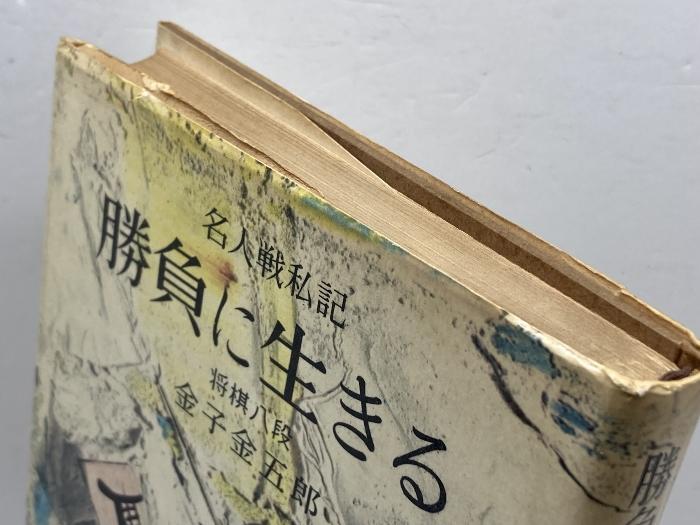 名人戦私記
勝負に生きる
将棋八段
金子金五郎
勝